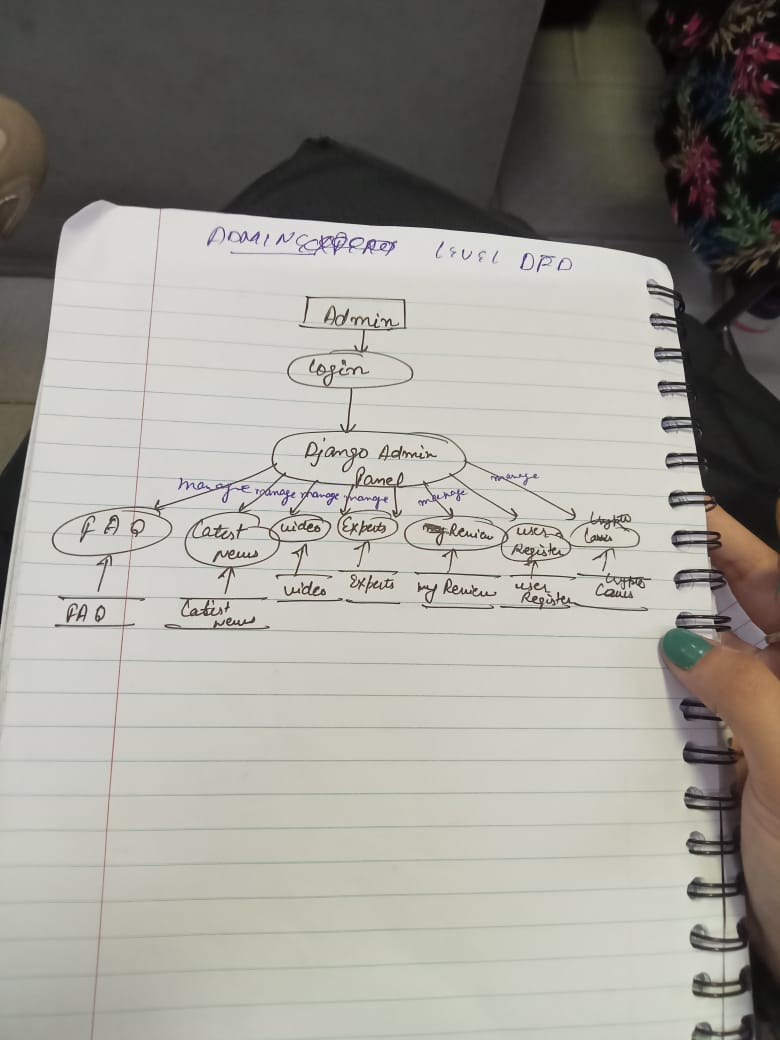 ADMIN LEVEL DFD
Admin
Login
Django Admin
Panel
manage manage manage manage manage manage
FAQ
Latest
News
video
Experts
Review
user
Register
FAQ
Latist
News
video
Experts
my Review
user
Register